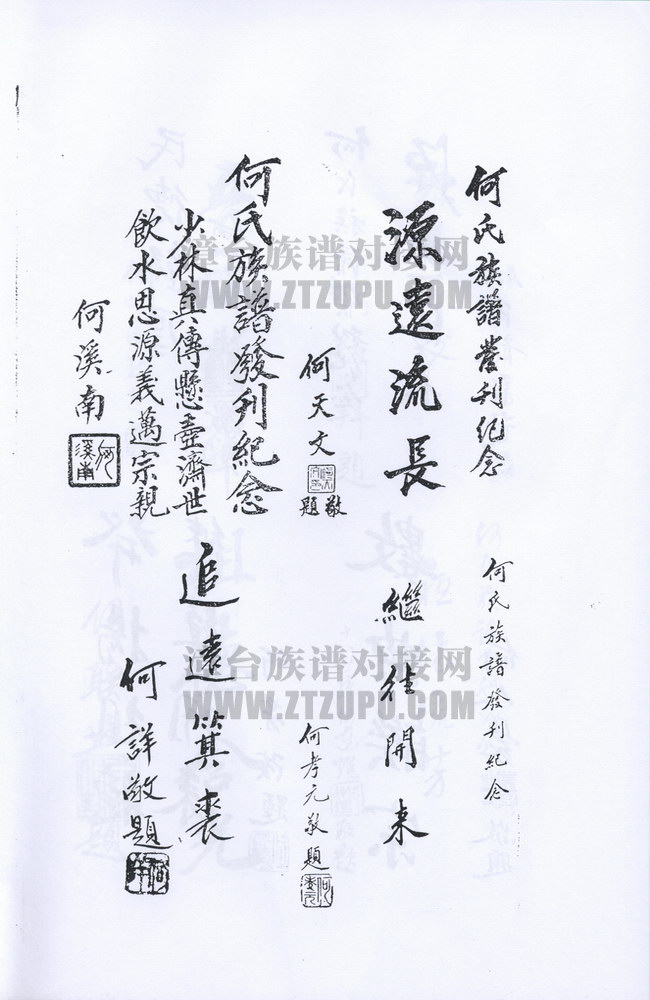 何氏族譜發刊紀念
源遠流長
何天文
敬題
何氏族譜發刊紀念
少林真傳懸壺濟世
飲水思源義邁宗親
何溪南
何溪南
何氏族譜發刊紀念
繼往開来
何孝元敬題
追遠箕裘
何詳敬題
漳台族谱对接网
WWW.ZTZUPU.COM
漳台族谱对接网
WWW.ZTZUPU.COM